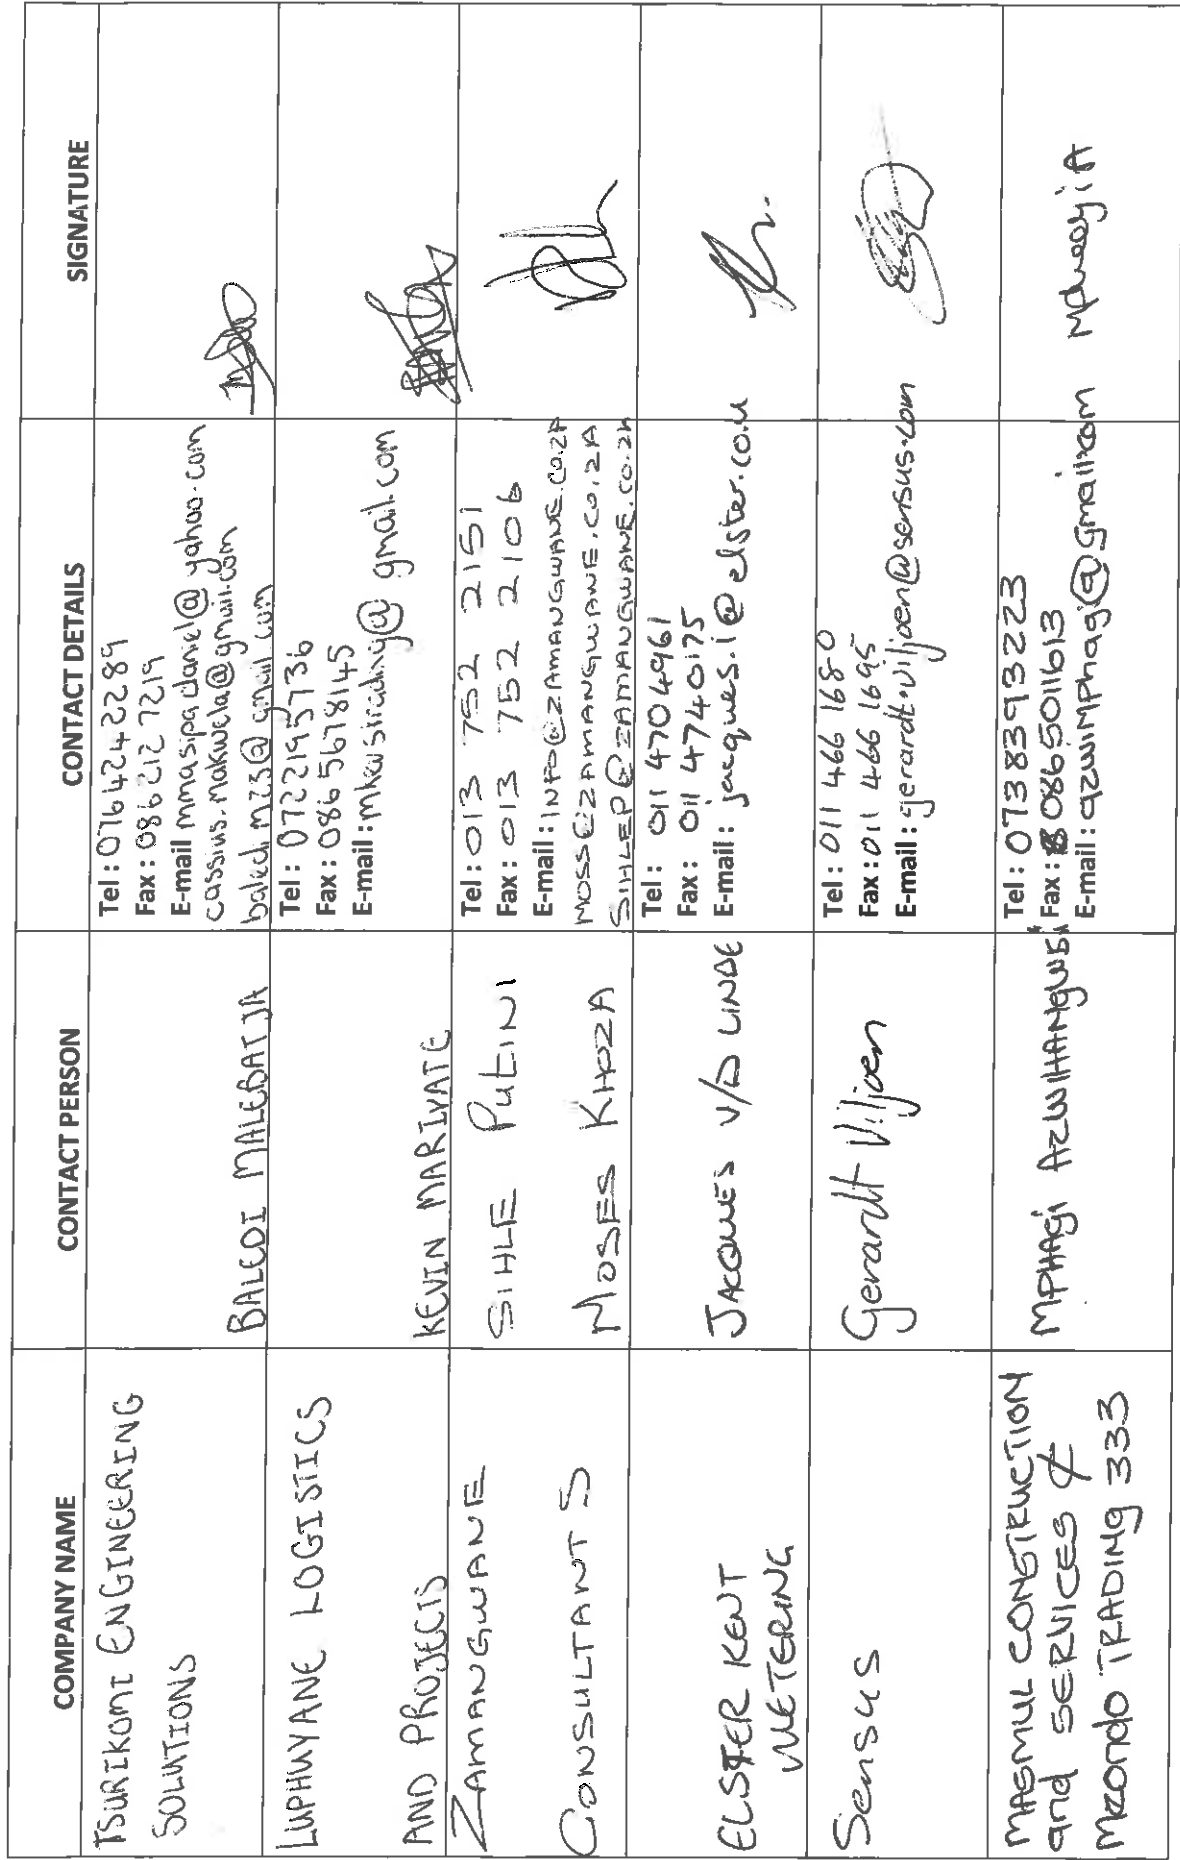 COMPANY NAME
CONTACT PERSON
CONTACT DETAILS
SIGNATURE
TSURIKOMI ENGINEERING
SOLUTIONS
BALEDI MALEBATJA
Tel : 0764242289
Fax : 086 212 7219
E-mail mmasipa daniel@yahoo.com
cassius.makwela@gmail.com
baledi.mz3@gmail.com
LUPHUYANE LOGISTICS
AND PROJECTS
KEVIN MARIVATE
Tel : 0722195736
Fax : 0865678145
E-mail : @gmail.com
ZAMANGWANE
CONSULTANTS
SIHLE PUTINI
MOSES KHOZA
Tel : 013 752 2151
Fax : 013 752 2106
E-mail : INFO@ZAMANGWANE.CO.ZA
MOSS@ZAMANGWANE.CO.ZA
SIHLEP@ZAMANGWANE.CO.ZA
ELSTER KENT
METERING
JACQUES V/D LINDE
Tel : 011 470 4961
Fax : 011 474 0175
E-mail : jacques.l@elster.com
Sensus
Gerardt Viljoen
Tel : 011 466 1680
Fax : 011 466 1695
E-mail : gerardt.viljoen@sensus.com
MASMUL CONSTRUCTION
and SERVICES &
Mzondo TRADING 333
MPHAGI AZWIHANGWISI
Tel : 0738393223
Fax : 0865011613
E-mail : azwimphagi@gmail.com